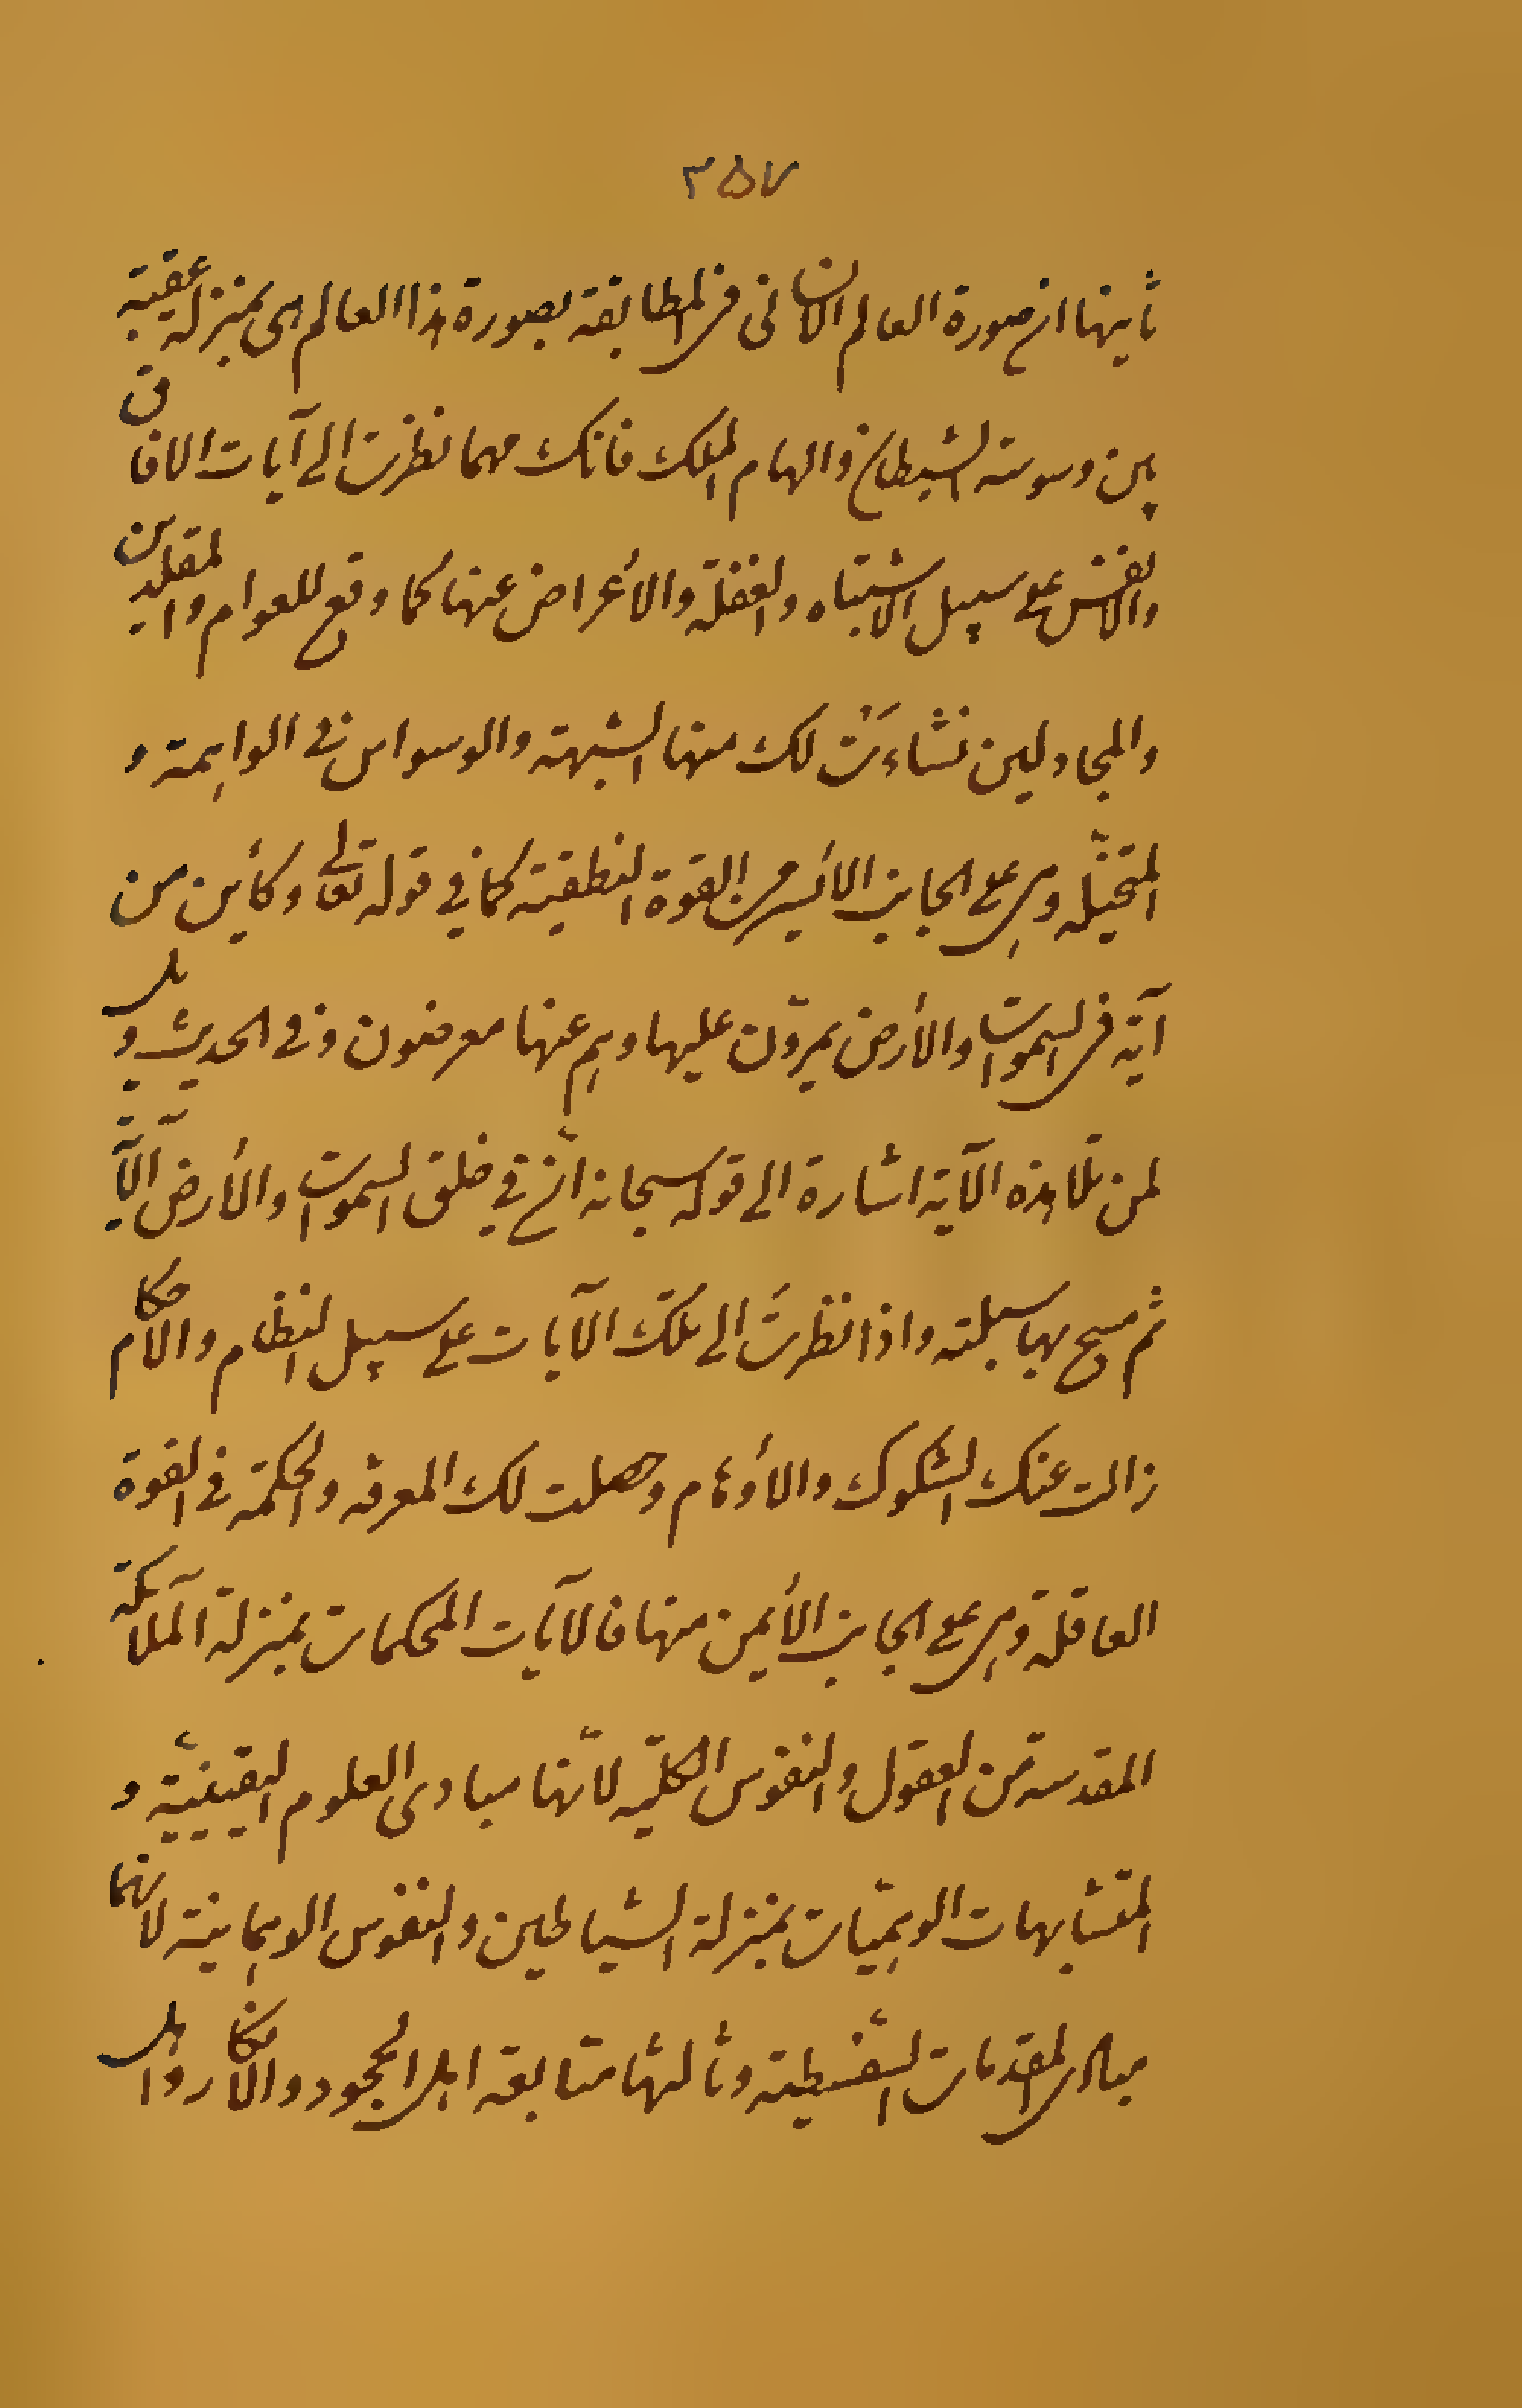 ٣٥٧
ثانيها ان صورة العالم الانسانى فى المطابقة بصورة هذا العالم هى بمنزلة عقبة
بين وسوسة الشيطان والهام الملك فانك مهما نظرت الى آيات الافاق
والانفس على سبيل الاشتباه والغفلة والأعراض عنها كما وقع للعوام والمقلدين
والمجادلين نشاءَتْ لك منها الشبهة والوسواس فى الواهمة و
المتخيّلة وهى على الجانب الأيسر من القوة النطقية كما فى قوله تعالى وكأين من
آية فى السموات والأرض يمرّون عليها وهم عنها معرضون وفى الحديث ويل
لمن تلا هذه الآية اشارة الى قوله سبحانه انّ فى خلق السموات والأرض الآية
ثم مسح بها سبلته واذا نظرتَ الى تلك الآيات على سبيل النظام والاحكام
زالت عنك الشكوك والأوهام وحصلت لك المعرفة والحكمة فى القوة
العاقلة وهى على الجانب الأيمن منها فالآيات المحكمات بمنزلة الملائكة
المقدسة من العقول والنفوس الكليّة لأنّها مبادى العلوم اليقينيّة و
المتشابهات الوهميّات بمنزلة الشياطين والنفوس الوهمانية لانها
مبادى المقدمات السّفسطية وثالثها متابعة اهل الجحود والانكار واهل